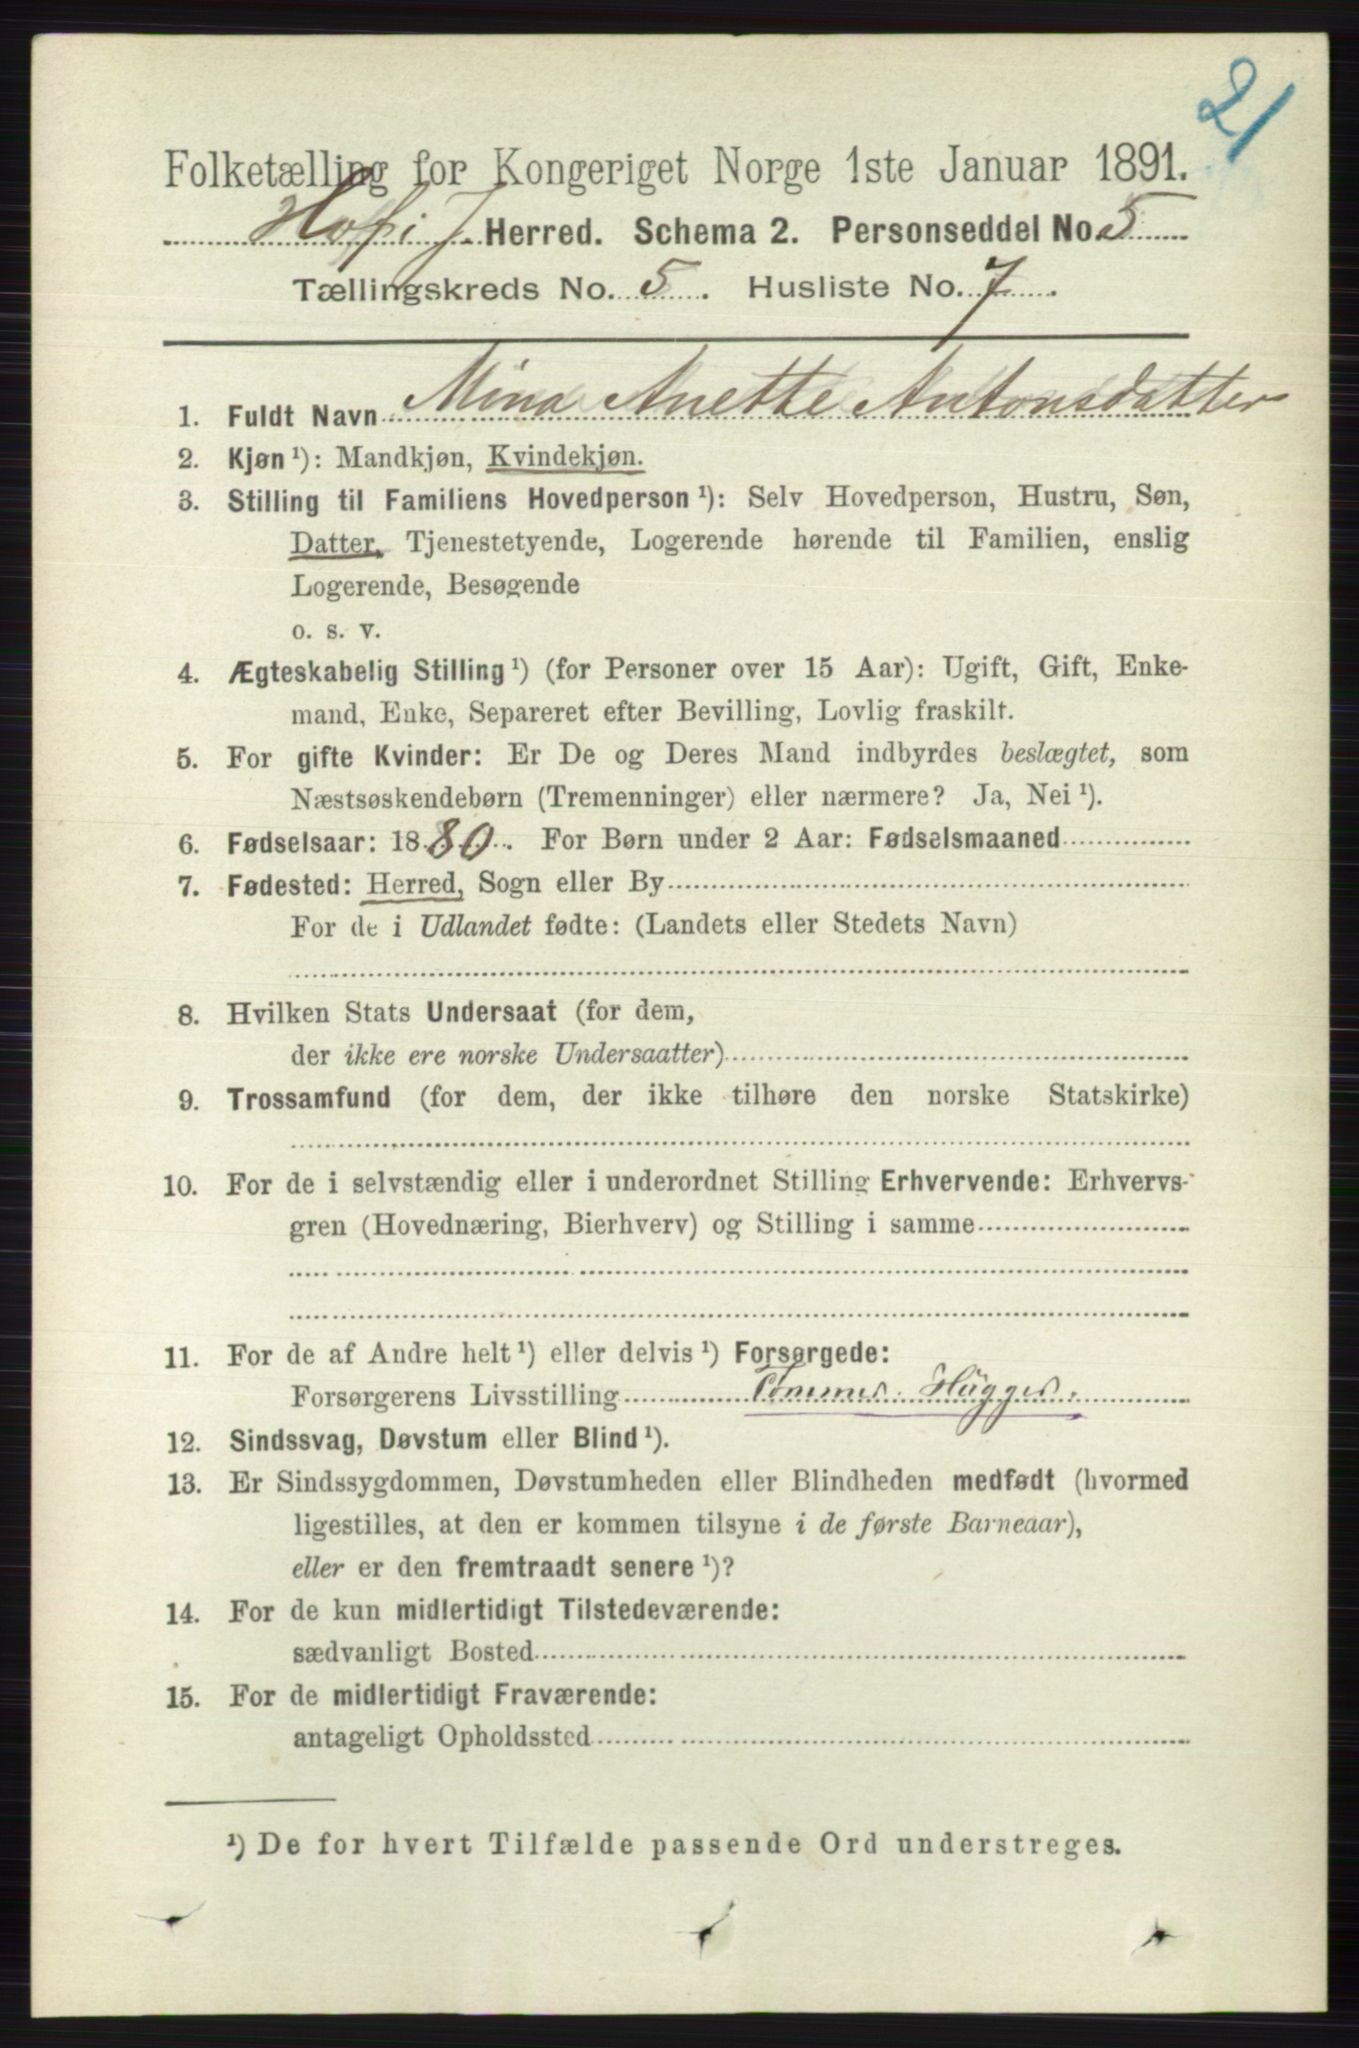 21
Folketælling for Kongeriget Norge 1ste Januar 1891.
Hof i J. Herred. Schema 2. Personseddel No. 5
Tællingskreds No. 5. Husliste No. 7.
1. Fuldt Navn Mina Anette Antonsdatter
2. Kjøn ¹): Mandkjøn, Kvindekjøn.
3. Stilling til Familiens Hovedperson ¹): Selv Hovedperson, Hustru, Søn,
Datter, Tjenestetyende, Logerende hørende til Familien, enslig
Logerende, Besøgende
o. s. v.
4. Ægteskabelig Stilling ¹) (for Personer over 15 Aar): Ugift, Gift, Enke-
mand, Enke, Separeret efter Bevilling, Lovlig fraskilt.
5. For gifte Kvinder: Er De og Deres Mand indbyrdes beslægtet, som
Næstsøskendebørn (Tremenninger) eller nærmere? Ja, Nei ¹).
6. Fødselsaar: 1880. For Børn under 2 Aar: Fødselsmaaned
7. Fødested: Herred, Sogn eller By
For de i Udlandet fødte: (Landets eller Stedets Navn)
8. Hvilken Stats Undersaat (for dem,
der ikke ere norske Undersaatter)
9. Trossamfund (for dem, der ikke tilhøre den norske Statskirke)
10. For de i selvstændig eller i underordnet Stilling Erhvervende: Erhvervs-
gren (Hovednæring, Bierhverv) og Stilling i samme
11. For de af Andre helt ¹) eller delvis ¹) Forsørgede:
Forsørgerens Livsstilling Tømmer Hugger.
12. Sindssvag, Døvstum eller Blind ¹).
13. Er Sindssygdommen, Døvstumheden eller Blindheden medfødt (hvormed
ligestilles, at den er kommen tilsyne i de første Barneaar),
eller er den fremtraadt senere ¹)?
14. For de kun midlertidigt Tilstedeværende:
sædvanligt Bosted
15. For de midlertidigt Fraværende:
antageligt Opholdssted
¹) De for hvert Tilfælde passende Ord understreges.